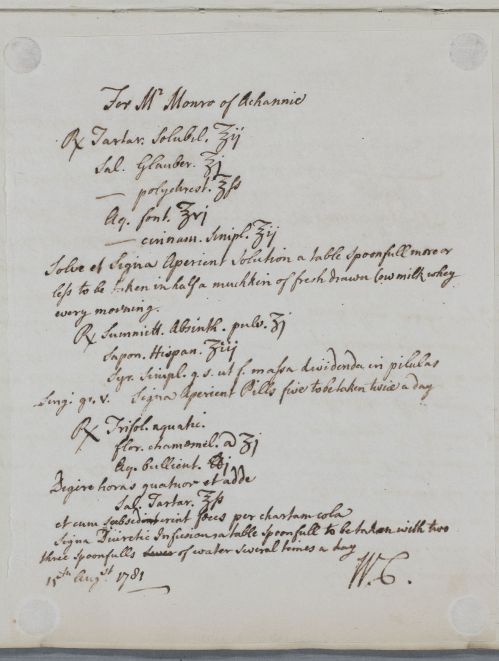 For Mr Monro of Achannie
℞ Tartar. Solubil. ʒij
Sal. Glauber. ʒj
— polychrest. ʒſs
Aq. font. ʒvj
— cinnam. Simpl. ʒij
Solve et Signa Aperient Solution a table Spoonfull more or
leſs to be taken in half a muchkin of fresh drawn Cow milk whey
every morning.
℞ Summitt. Absinth. pulv. ʒj
Sapon. Hispan. ʒiij
Syr. Simpl. q.s. ut f. maſsa dividenda in pilulas
Sing. gr. v. Signa Aperient Pills five to be taken twice a day
℞ Trifol. aquatic.
flor. chamæmel. a ʒj
Aq. bullient. ℔j
Digere horas quatuor et adde
Sal. Tartar. ʒſs
et cum subsiderint fœces per chartam cola
Signa Diuretic Infusion a table Spoonfull to be taken with two
three Spoonfulls of water several times a day
15th Augst. 1781 W.C.